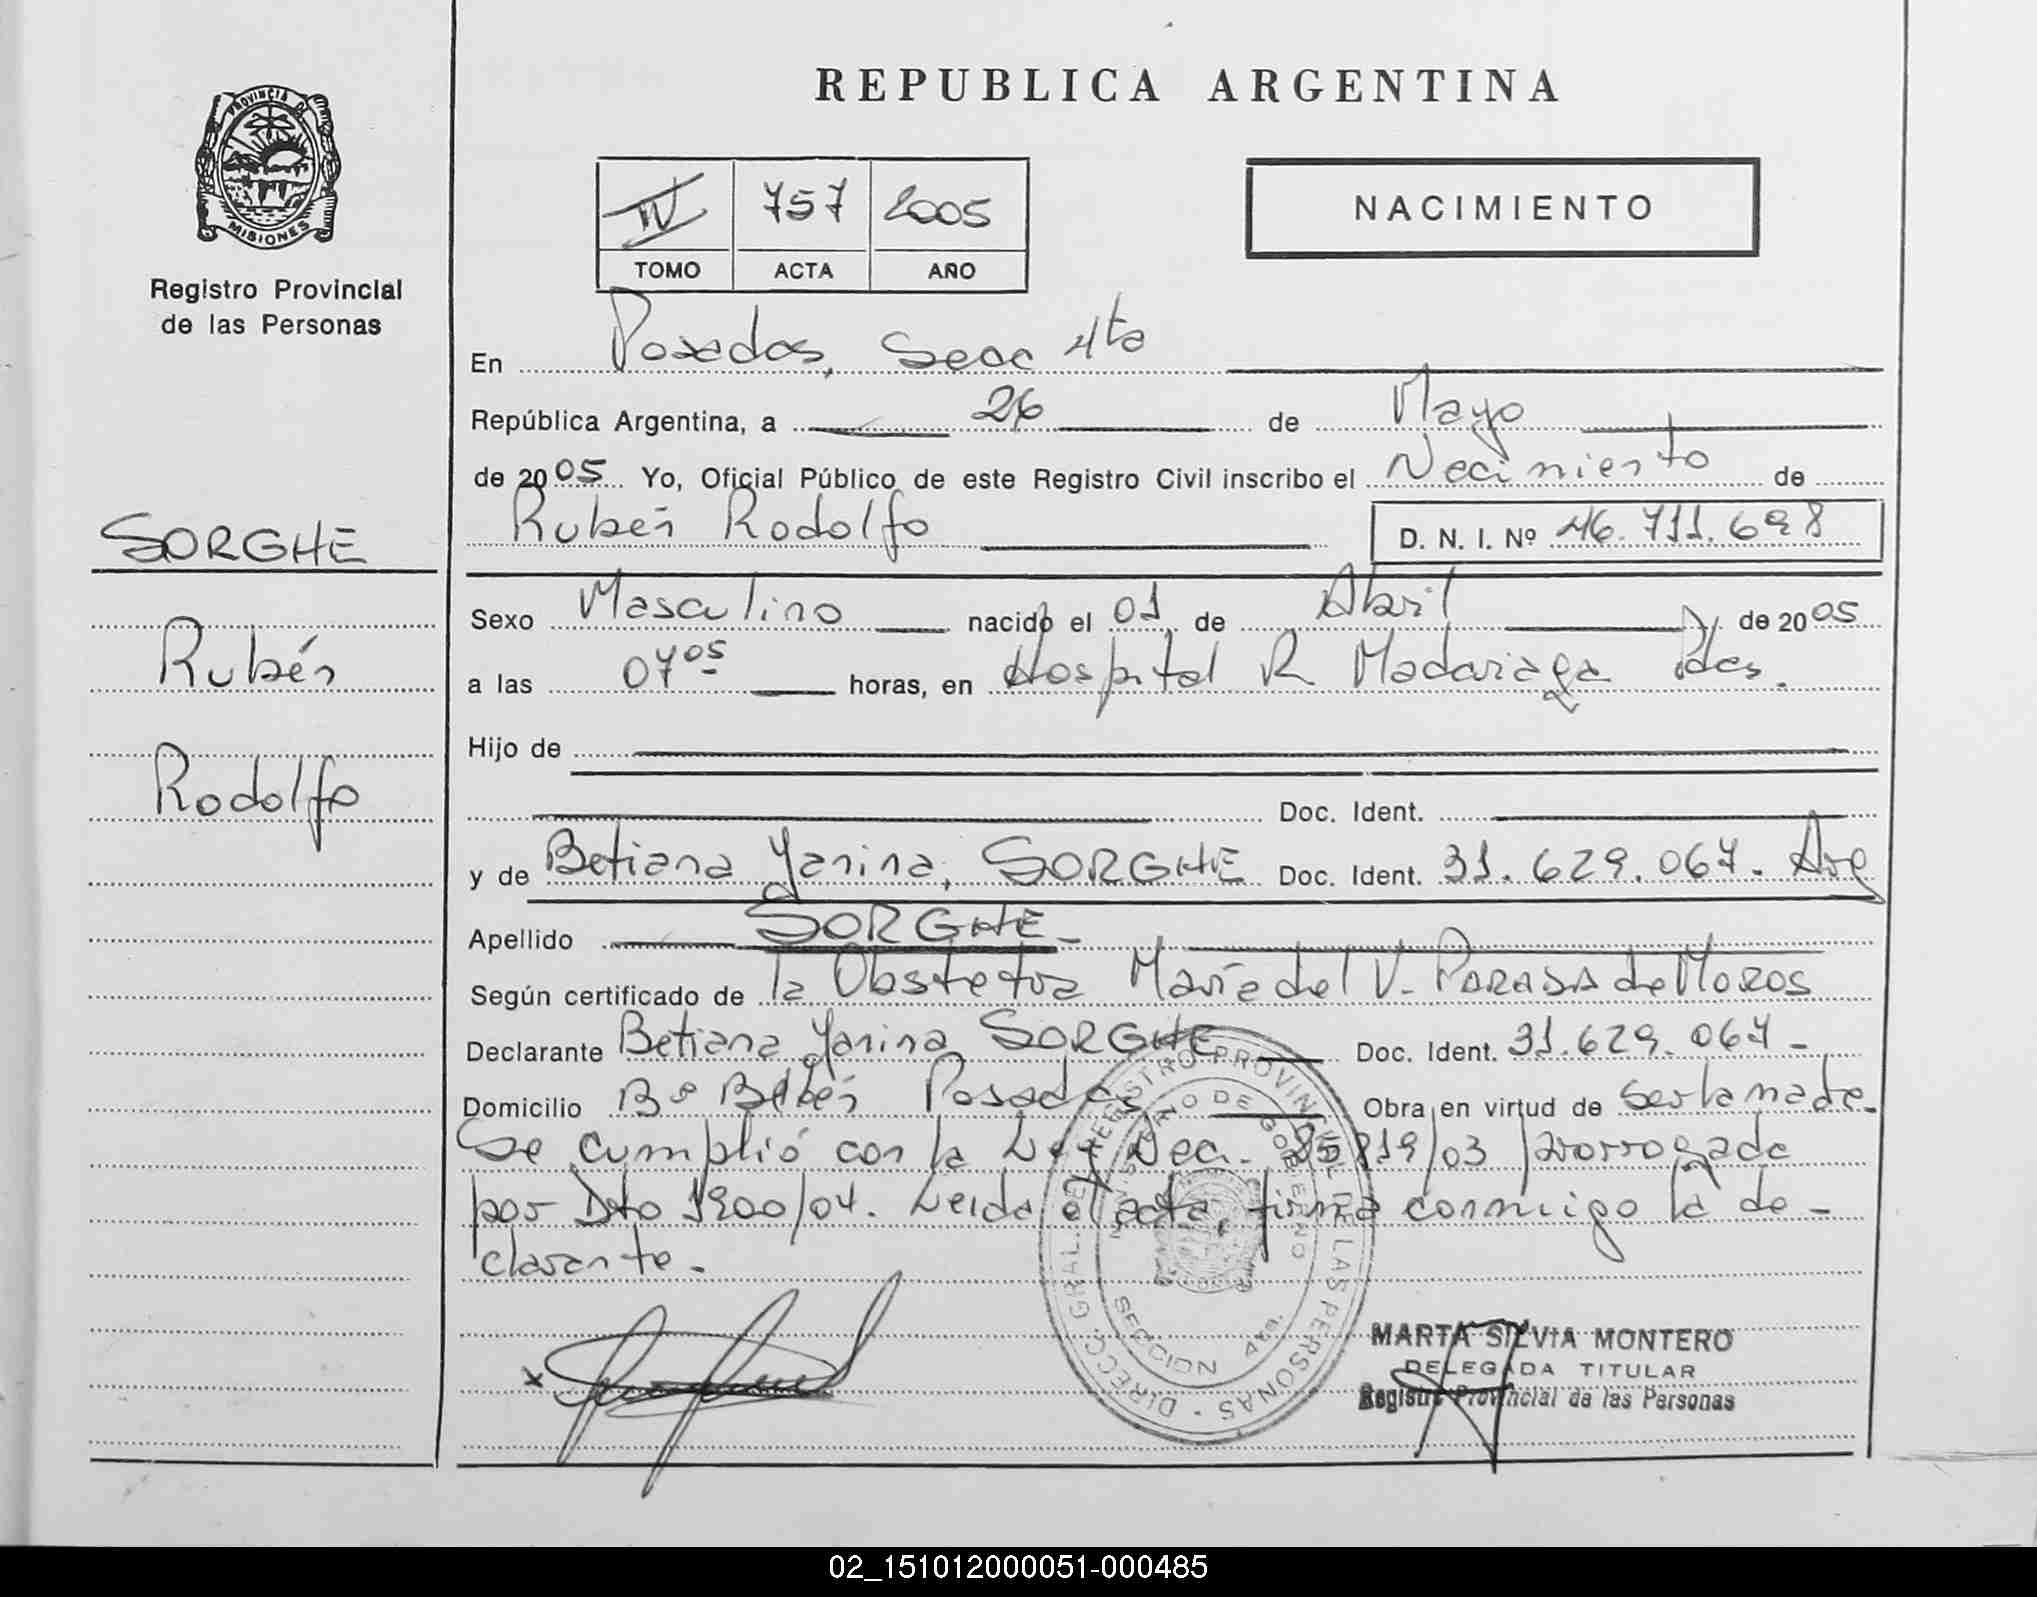 REPUBLICA ARGENTINA
PROVINCIA D
MISIONES
Registro Provincial
de las Personas
IV 757 2005
TOMO ACTA AÑO
NACIMIENTO
SORGHE
Rubén
Rodolfo
En Posadas, Secc 4ta
República Argentina, a 26 de Mayo
de 2005 Yo, Oficial Público de este Registro Civil inscribo el Nacimiento de
Rubén Rodolfo D. N. I. Nº 46.711.698
Sexo Masculino nacido el 01 de Abril de 2005
a las 07 05 horas, en Hospital R Madariaga Pdas.
Hijo de
Doc. Ident.
y de Betiana Yanina, SORGHE Doc. Ident. 31.629.067. Arg
Apellido SORGHE
Según certificado de la Obstetra María del V. PARADA de MOROS
Declarante Betiana Yanina SORGHE Doc. Ident. 31.629.067
Domicilio Bº Belén Posadas Obra en virtud de ser la madre.
Se cumplió con la Ley Dec. 25819/03 prorrogada
por Dto 1900/04. Leida el acta, firma conmigo la de-
clarante.
DIRECC. GRAL. DEL REGISTRO PROVINCIAL DE LAS PERSONAS
DE GOBIERNO
SECCION 4ta.
MARTA SILVIA MONTERO
DELEGADA TITULAR
Registro Provincial de las Personas
02_151012000051-000485